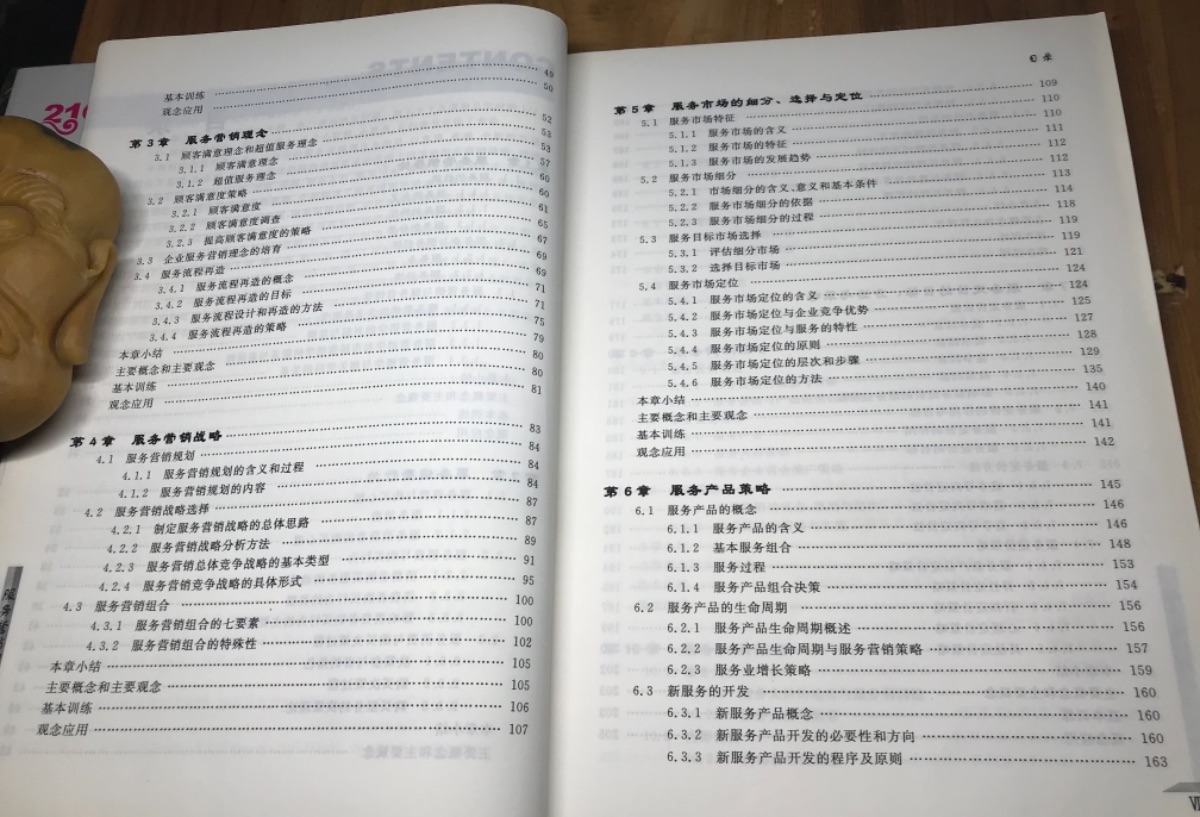 基本训练 …… 49
观念应用 …… 50
第3章 服务营销理念 …… 52
3.1 顾客满意理念和超值服务理念 …… 53
3.1.1 顾客满意理念 …… 53
3.1.2 超值服务理念 …… 57
3.2 顾客满意度策略 …… 60
3.2.1 顾客满意度 …… 60
3.2.2 顾客满意度调查 …… 61
3.2.3 提高顾客满意度的策略 …… 65
3.3 企业服务营销理念的培育 …… 67
3.4 服务流程再造 …… 69
3.4.1 服务流程再造的概念 …… 69
3.4.2 服务流程再造的目标 …… 71
3.4.3 服务流程设计和再造的方法 …… 71
3.4.4 服务流程再造的策略 …… 75
本章小结 …… 79
主要概念和主要观念 …… 80
基本训练 …… 80
观念应用 …… 81
第4章 服务营销战略 …… 83
4.1 服务营销规划 …… 84
4.1.1 服务营销规划的含义和过程 …… 84
4.1.2 服务营销规划的内容 …… 84
4.2 服务营销战略选择 …… 87
4.2.1 制定服务营销战略的总体思路 …… 87
4.2.2 服务营销战略分析方法 …… 89
4.2.3 服务营销总体竞争战略的基本类型 …… 91
4.2.4 服务营销竞争战略的具体形式 …… 95
4.3 服务营销组合 …… 100
4.3.1 服务营销组合的七要素 …… 100
4.3.2 服务营销组合的特殊性 …… 102
本章小结 …… 105
主要概念和主要观念 …… 105
基本训练 …… 106
观念应用 …… 107
目录
第5章 服务市场的细分、选择与定位 …… 109
5.1 服务市场特征 …… 110
5.1.1 服务市场的含义 …… 110
5.1.2 服务市场的特征 …… 111
5.1.3 服务市场的发展趋势 …… 112
5.2 服务市场细分 …… 112
5.2.1 市场细分的含义、意义和基本条件 …… 113
5.2.2 服务市场细分的依据 …… 114
5.2.3 服务市场细分的过程 …… 118
5.3 服务目标市场选择 …… 119
5.3.1 评估细分市场 …… 119
5.3.2 选择目标市场 …… 121
5.4 服务市场定位 …… 124
5.4.1 服务市场定位的含义 …… 124
5.4.2 服务市场定位与企业竞争优势 …… 125
5.4.3 服务市场定位与服务的特性 …… 127
5.4.4 服务市场定位的原则 …… 128
5.4.5 服务市场定位的层次和步骤 …… 129
5.4.6 服务市场定位的方法 …… 135
本章小结 …… 140
主要概念和主要观念 …… 141
基本训练 …… 141
观念应用 …… 142
第6章 服务产品策略 …… 145
6.1 服务产品的概念 …… 146
6.1.1 服务产品的含义 …… 146
6.1.2 基本服务组合 …… 148
6.1.3 服务过程 …… 153
6.1.4 服务产品组合决策 …… 154
6.2 服务产品的生命周期 …… 156
6.2.1 服务产品生命周期概述 …… 156
6.2.2 服务产品生命周期与服务营销策略 …… 157
6.2.3 服务业增长策略 …… 159
6.3 新服务的开发 …… 160
6.3.1 新服务产品概念 …… 160
6.3.2 新服务产品开发的必要性和方向 …… 160
6.3.3 新服务产品开发的程序及原则 …… 163